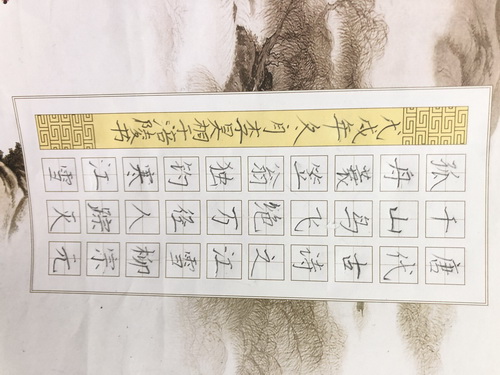 唐代古诗之江雪柳宗元
千山鸟飞绝万径人踪灭
孤舟蓑笠翁独钓寒江雪
戊戌年冬月李昊桐于涪陵书